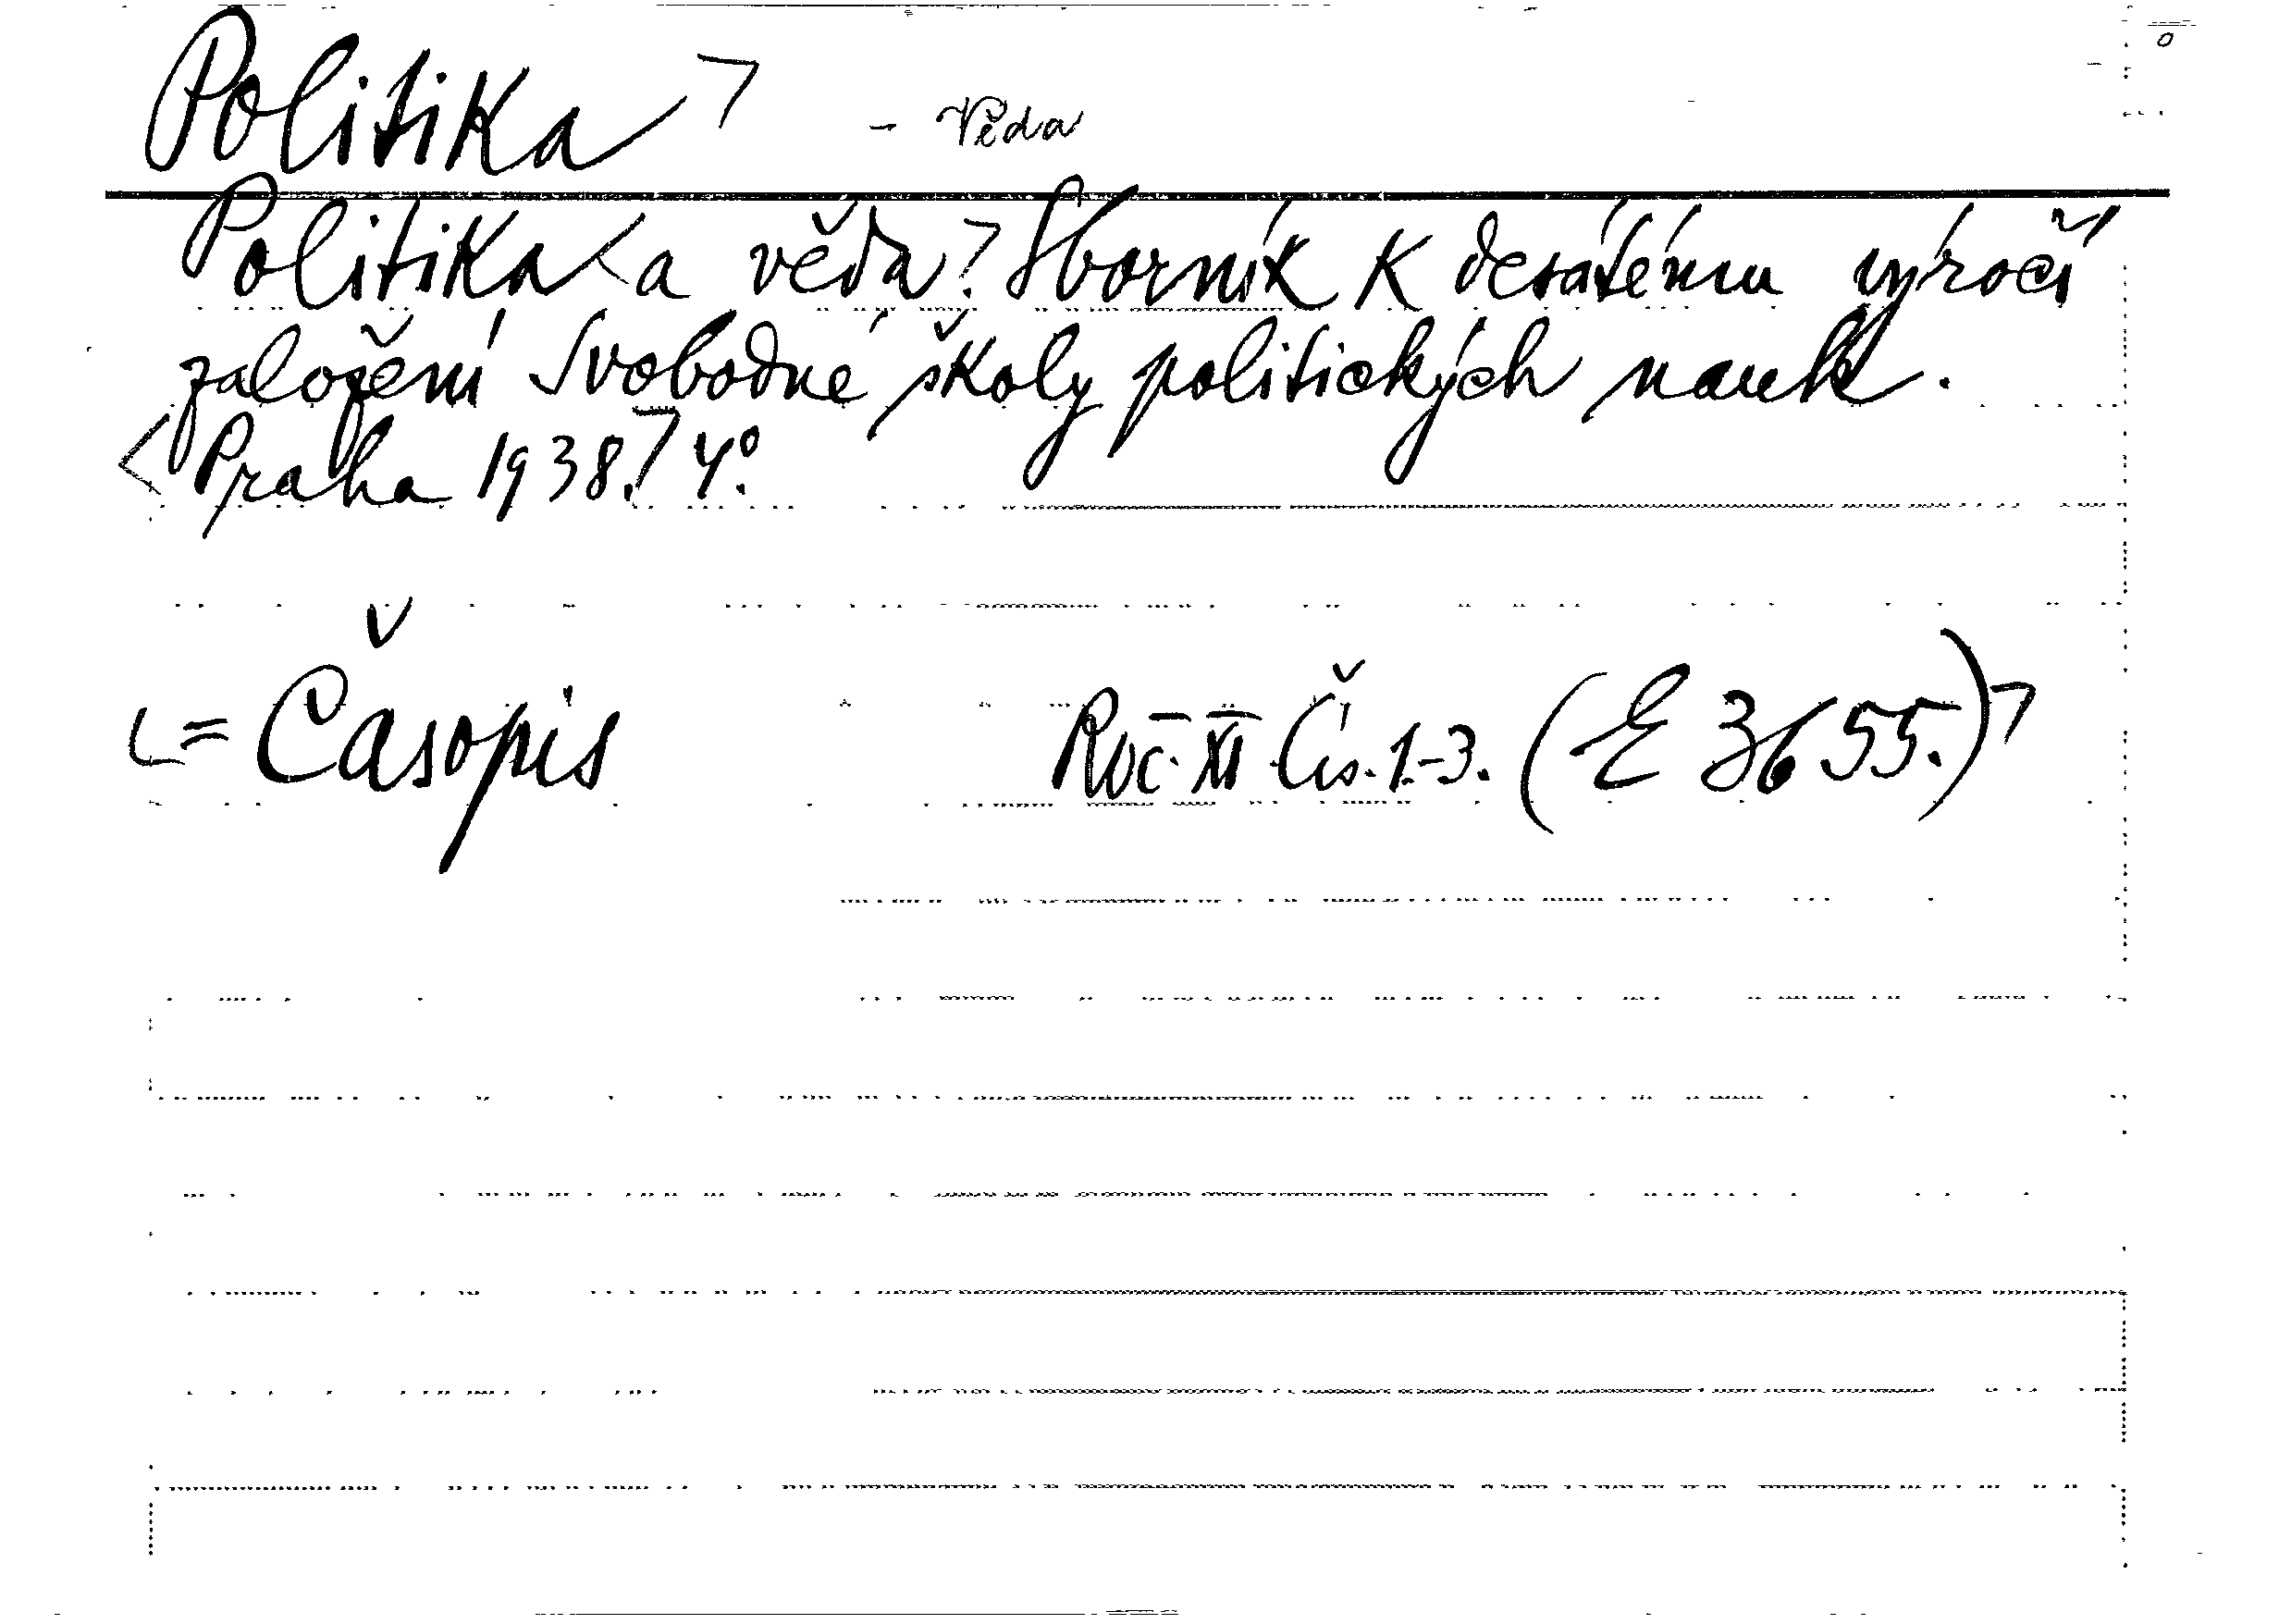 Politika > - Věda
Politika < a věda > Sborník k desátému výročí
založení Svobodné školy politických nauk.
< Praha 1938. > 4°.
< = Časopis Roč. XI Čís. 1.-3. (E 3655.) >